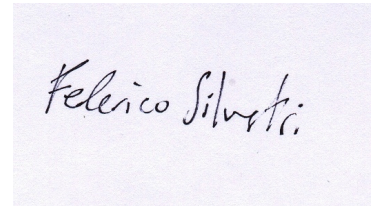 Federico Silvestri